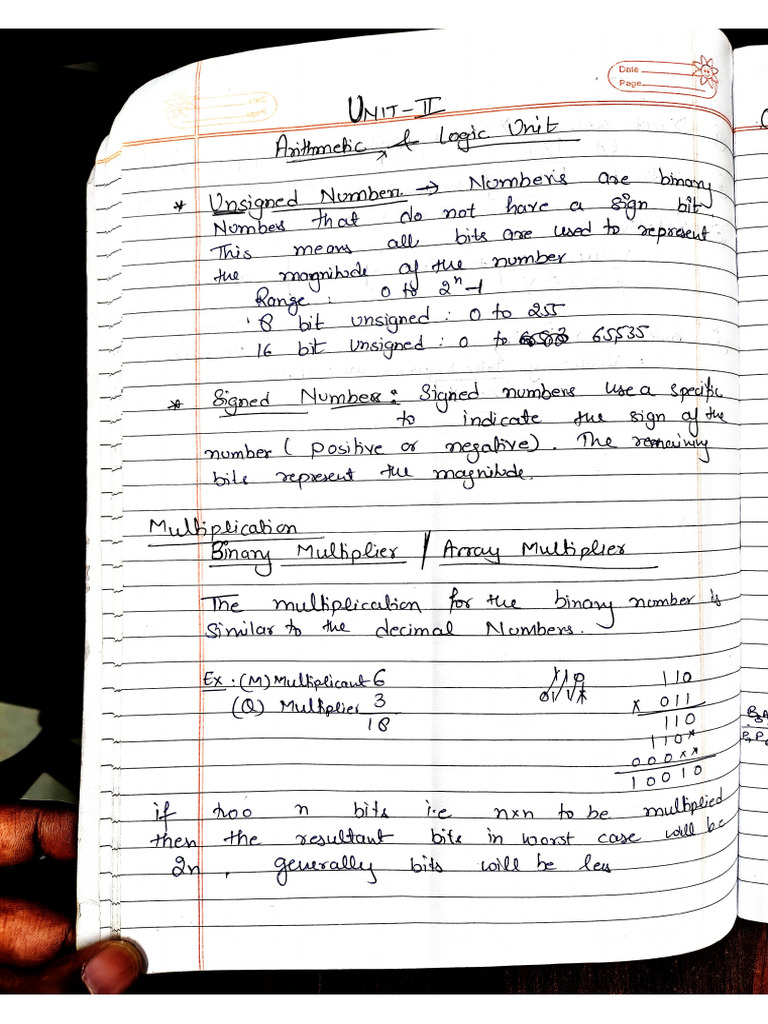 Date
Page
UNIT-II
Arithmetic & Logic Unit
* Unsigned Number. → Numbers are binary
Numbers that do not have a sign bit.
This means all bits are used to represent
the magnitude of the number
Range : 0 to 2ⁿ-1
8 bit unsigned : 0 to 255
16 bit unsigned : 0 to 65,535
* Signed Number : Signed numbers use a specific
to indicate the sign of the
number ( positive or negative). The remaining
bits represent the magnitude.
Multiplication
Binary Multiplier / Array Multiplier
The multiplication for the binary number is
similar to the decimal Numbers.
Ex : (M) Multiplicant 6
(Q) Multiplier 3
18
110
x 011
110
110*
000**
10010
if two n bits i.e n×n to be multiplied
then the resultant bits in worst case will be
2n , generally bits will be less